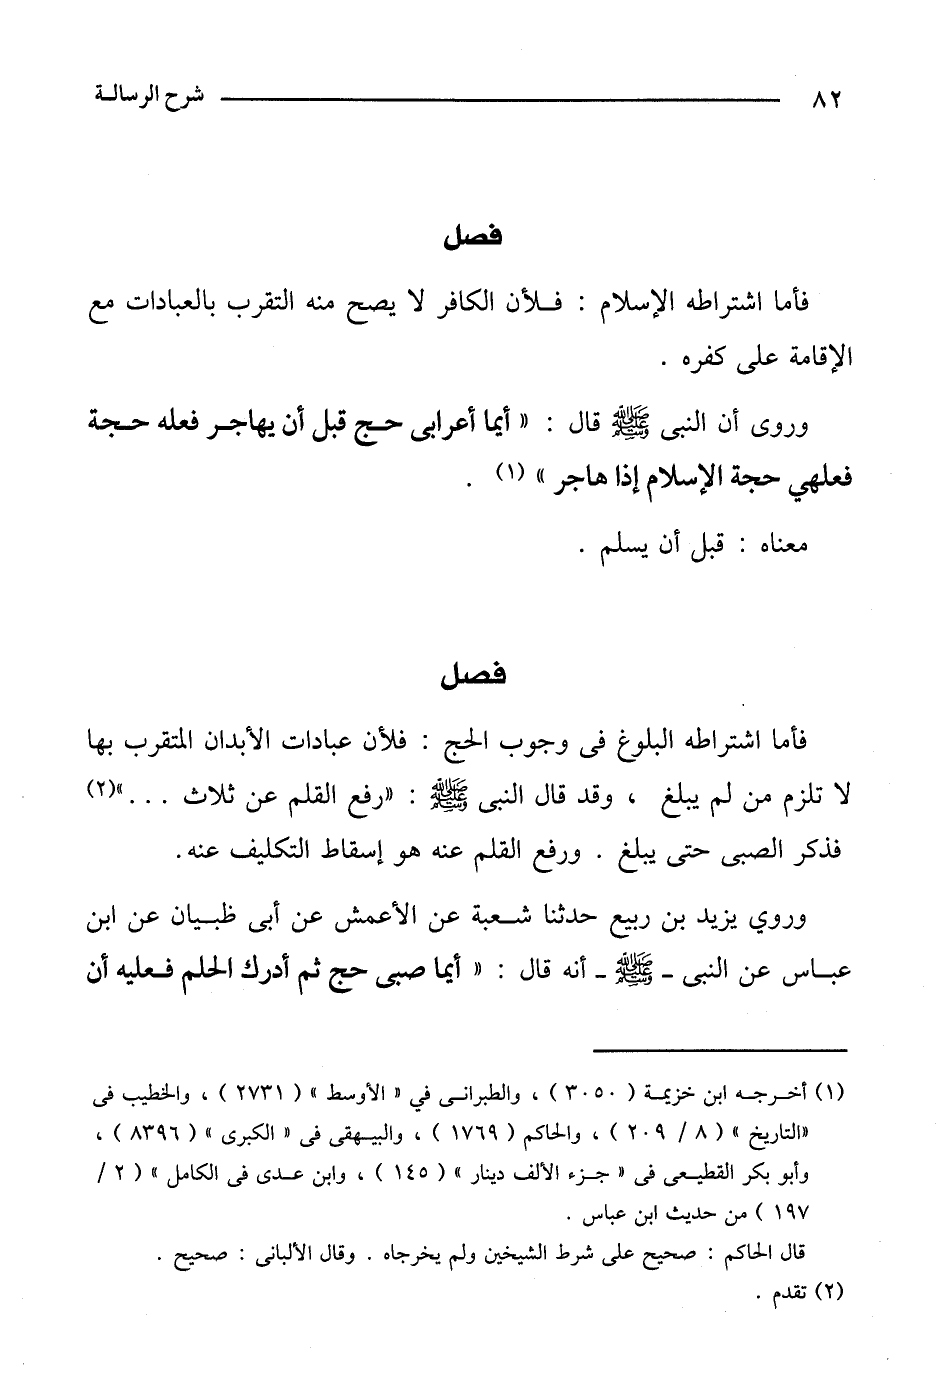 ٨٢ شرح الرسالـة
فصل
فأما اشتراطه الإسلام : فـلأن الكافر لا يصح منه التقرب بالعبادات مع
الإقامة على كفره .
وروى أن النبى ﷺ قال : « أيما أعرابى حـج قبل أن يهاجـر فعله حـجة
فعلهي حجة الإسلام إذا هاجر » (١) .
معناه : قبل أن يسلم .
فصل
فأما اشتراطه البلوغ فى وجوب الحج : فلأن عبادات الأبدان المتقرب بها
لا تلزم من لم يبلغ ، وقد قال النبى ﷺ : «رفع القلم عن ثلاث ...»(٢)
فذكر الصبى حتى يبلغ . ورفع القلم عنه هو إسقاط التكليف عنه.
وروي يزيد بن ربيع حدثنا شـعبة عن الأعمش عن أبى ظبـيان عن ابن
عبـاس عن النبى ـ ﷺ ـ أنه قال : « أيما صبى حج ثم أدرك الحلم فـعليه أن
(١) أخـرجـه ابن خزيمة ( ٣٠٥٠ ) ، والطبرانـى في « الأوسط » ( ٢٧٣١ ) ، والخطيب فى
«التاريخ » ( ٨ / ٢٠٩ ) ، والحاكم ( ١٧٦٩ ) ، والبيـهقى فى « الكبرى » ( ٨٣٩٦ ) ،
وأبو بكر القطيـعى فى « جـزء الألف دينار » ( ١٤٥ ) ، وابن عـدى فى الكامل » ( ٢ /
١٩٧ ) من حديث ابن عباس .
قال الحاكم : صحيح على شرط الشيخين ولم يخرجاه . وقال الألبانى : صحيح .
(٢) تقدم .